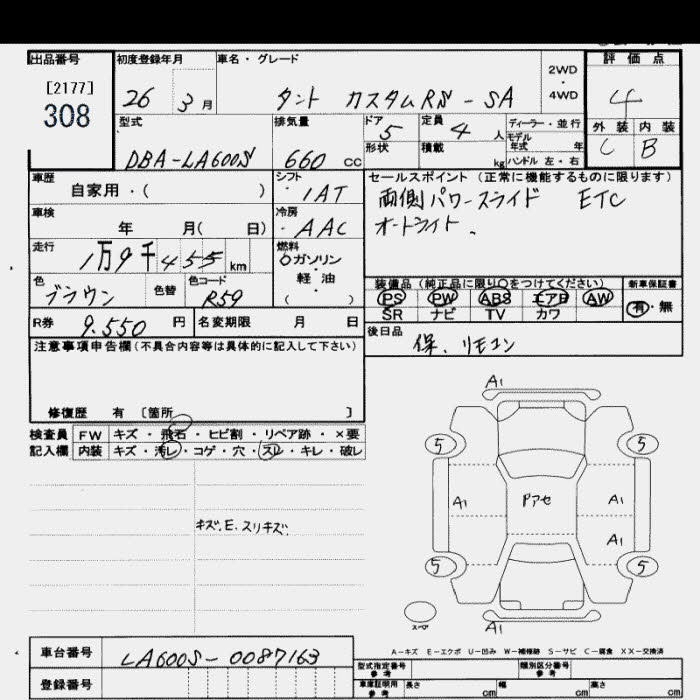 出品番号
[2177]
308
初度登録年月
26 3 月
車名・グレード
タント カスタムRS-SA
2WD
・
4WD
評価点
4
外装 内装
C B
型式
DBA-LA600S
排気量
660 cc
ドア
5
形状
定員
4 人
積載
kg
ディーラー・並行
モデル
年式 年
ハンドル 左・右
車歴
自家用・( )
シフト
・IAT
セールスポイント(正常に機能するものに限ります)
両側パワースライド ETC
オートライト、
車検
年 月( 日)
冷房
・AAC
走行
1万9千455 km
燃料
ガソリン
・
軽・油
( )
色
ブラウン
色替
色コード
R59
装備品(純正品に限り○をつけてください)
PS PW ABS エアB AW
SR ナビ TV カワ
新車保証書
有・無
R券
9.550 円
名変期限 月 日
後日品
保、リモコン
注意事項申告欄(不具合内容等は具体的に記入して下さい)
修復歴 有 〔箇所 〕
検査員
記入欄
FW キズ・飛石・ヒビ割・リペア跡・×要
内装 キズ・汚レ・コゲ・穴・スレ・キレ・破レ
キズ、E、スリキズ、
A1
5 5
A1 Pアセ A1
A1
5 5
スペア
A1
A-キズ E-エクボ U-凹み W-補修跡 S-サビ C-腐食 XX-交換済
車台番号
LA600S-0087163
登録番号
型式指定番号
参考
類別区分番号
参考
車庫証明用
参考
長さ cm
幅 cm
高さ cm